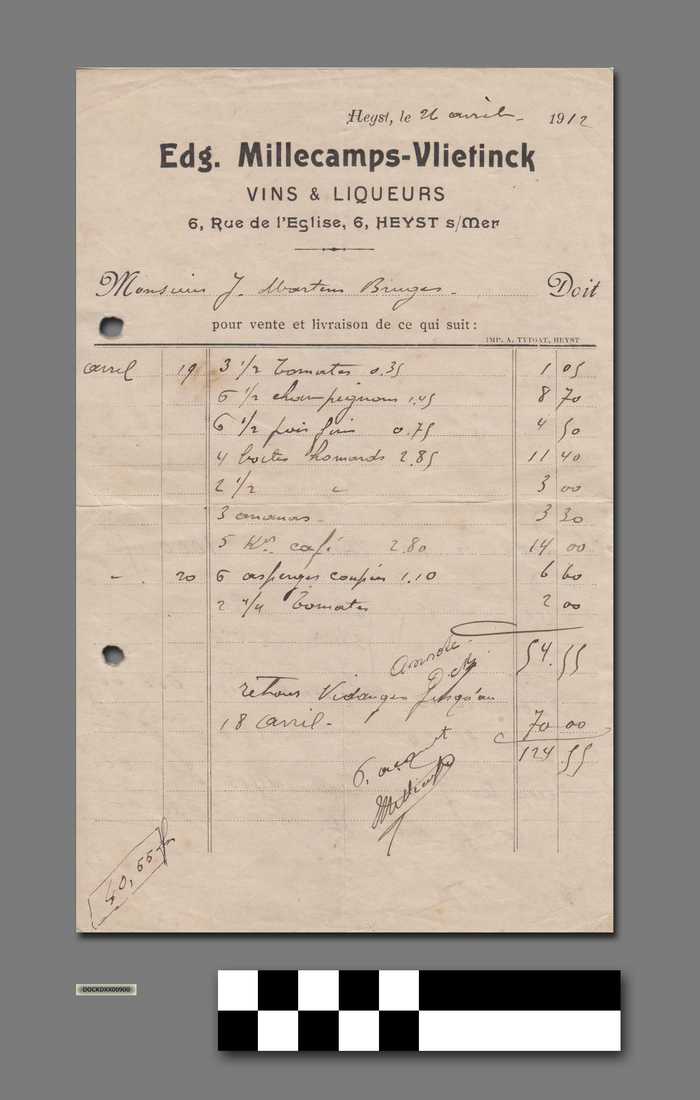 Heyst, le 26 avril 1912
Edg. Millecamps-Vlietinck
VINS & LIQUEURS
6, Rue de l'Eglise, 6, HEYST s/Mer
Monsieur J. Martens Bruges. Doit
pour vente et livraison de ce qui suit :
IMP. A. TYTGAT, HEYST
avril 19 3 1/2 Tomates 0.35 1 05
6 1/2 champignons 1.45 8 70
6 1/2 pois fins 0.75 4 50
4 boites homards 2.85 11 40
2 1/2 " 3 00
3 ananas 3 30
5 Kos café 2.80 14 00
" 20 6 asperges coupées 1.10 6 60
2 4/4 Tomates 2 00
54.55
retour Vidanges jusqu'au
18 avril - 70 00
124 55
acquit
Millecamps
40,55 fr
DOCKDXX00900